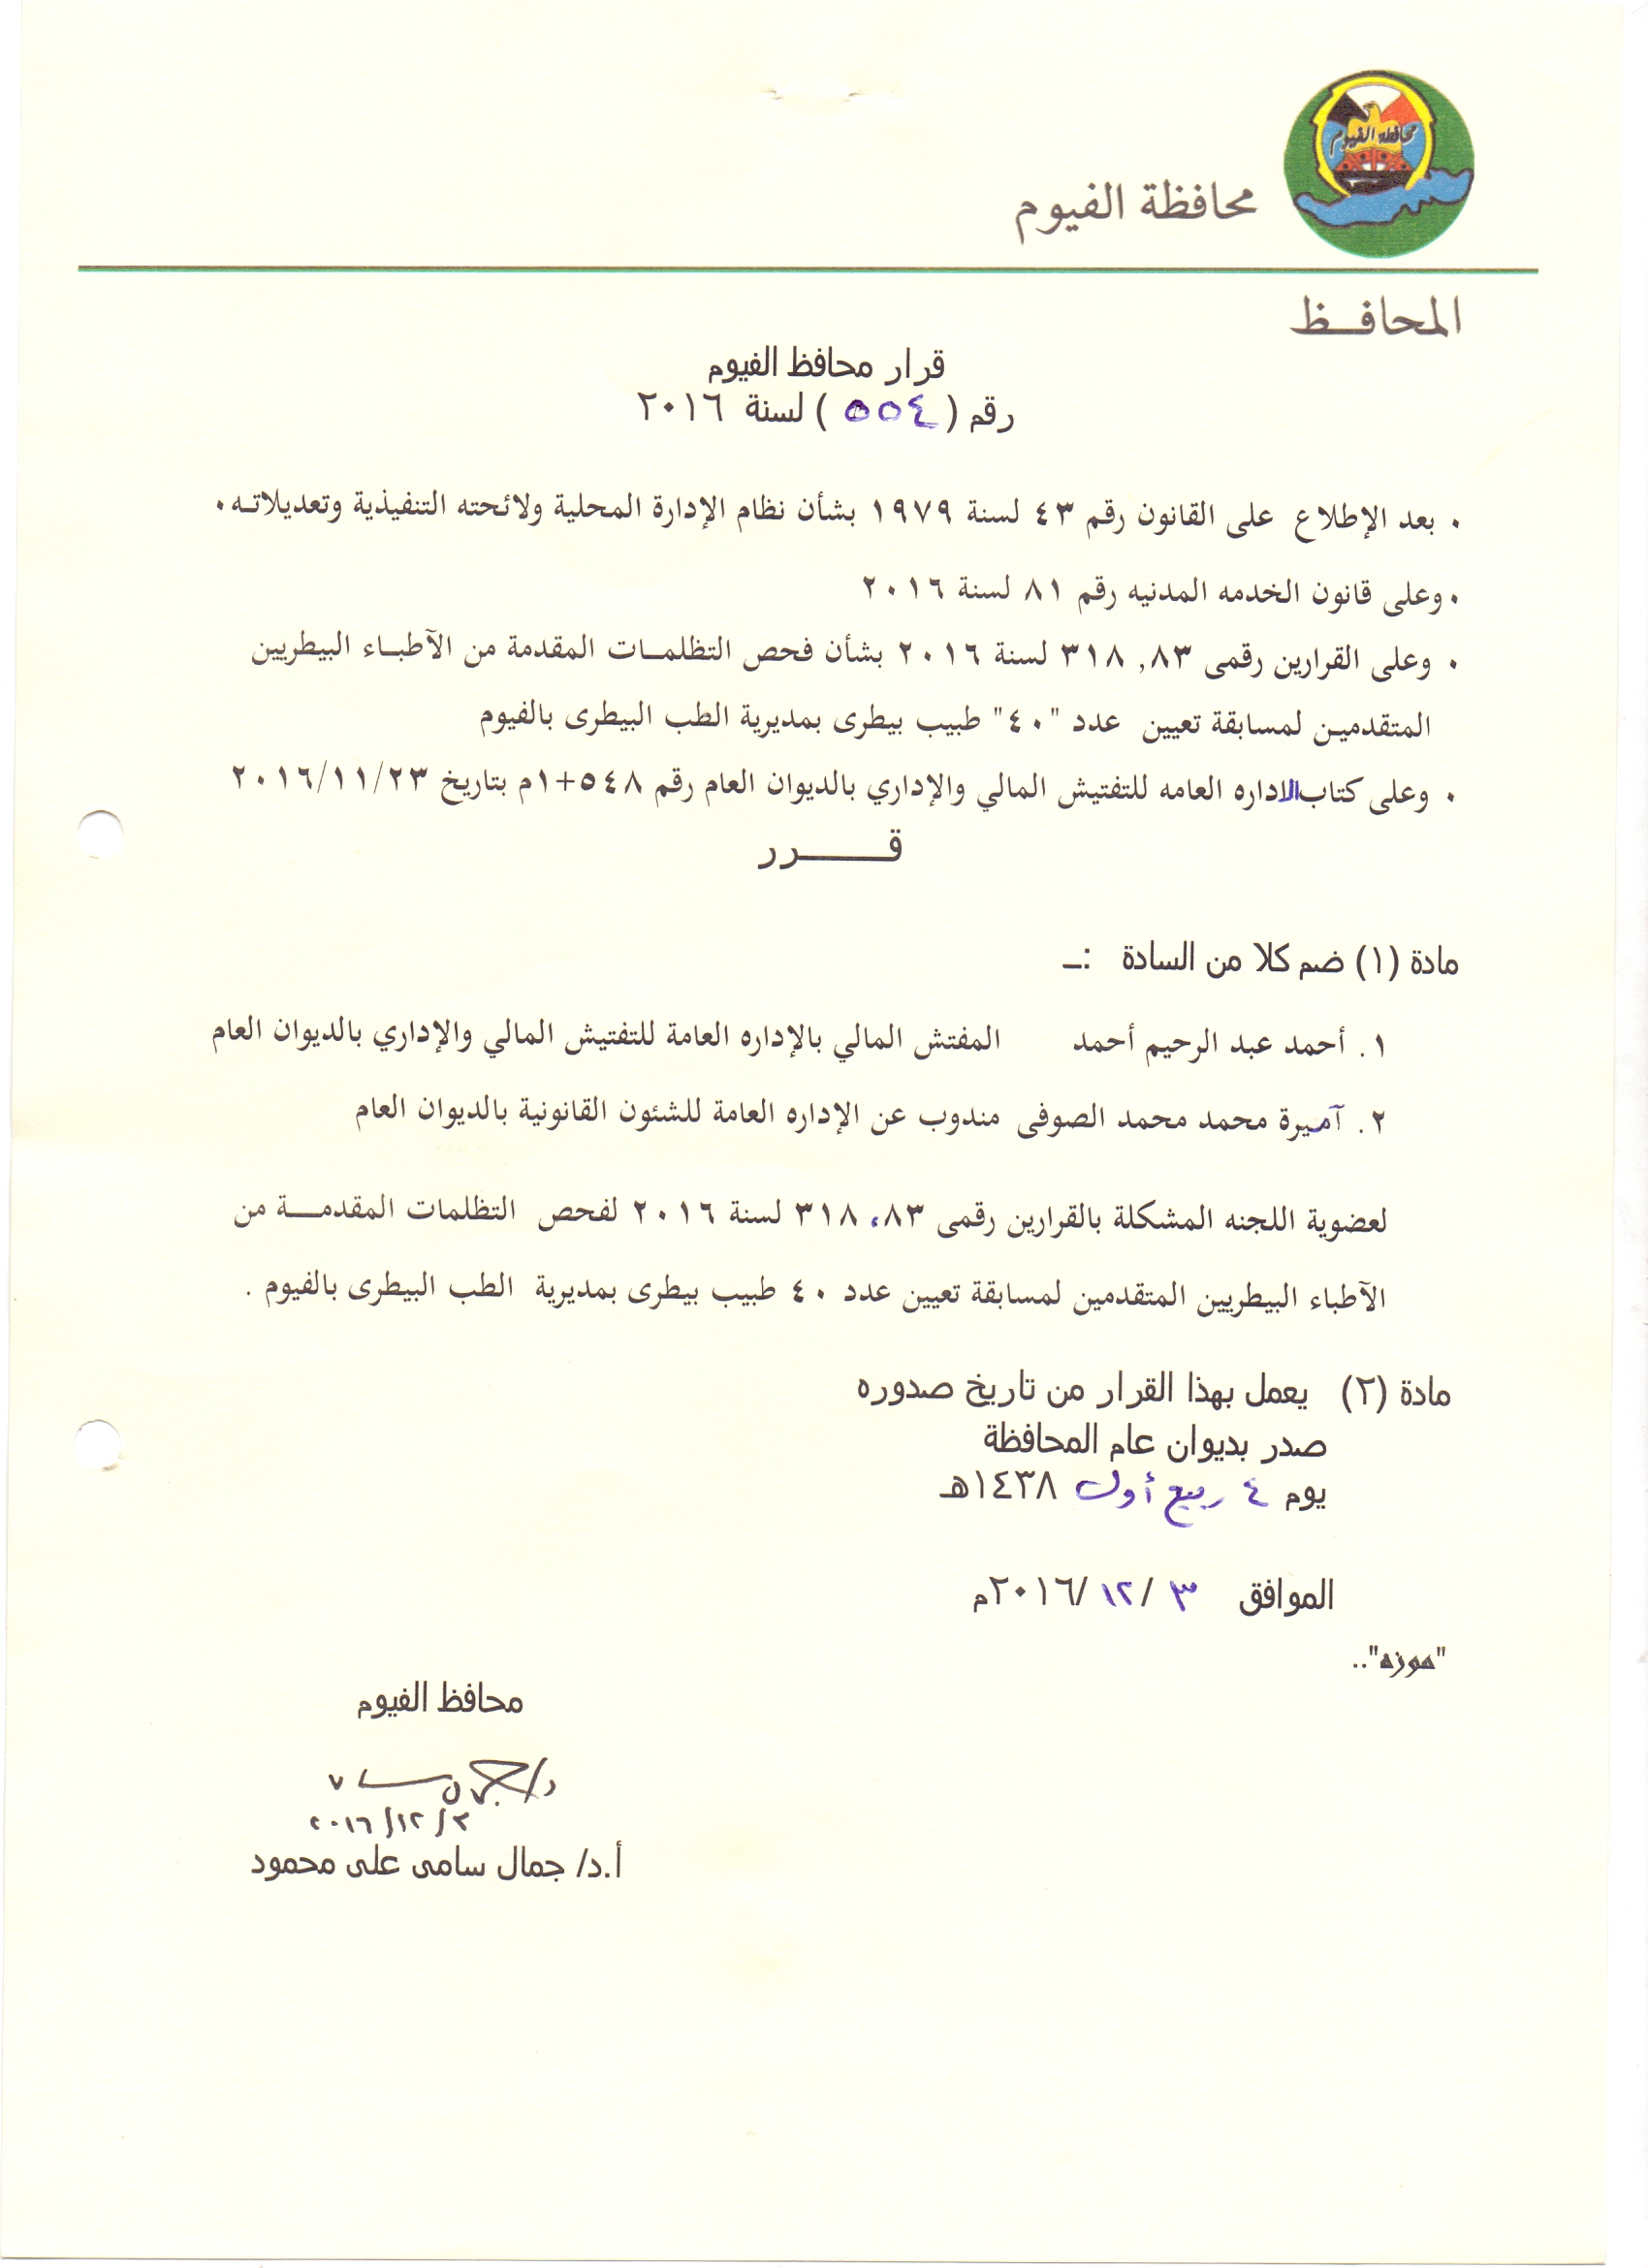 محافظة الفيوم
محافظة الفيوم
المحافــظ
قرار محافظ الفيوم
رقم ( ٥٥٤ ) لسنة ٢٠١٦
• بعد الإطلاع على القانون رقم ٤٣ لسنة ١٩٧٩ بشأن نظام الإدارة المحلية ولائحته التنفيذية وتعديلاتـه٠
• وعلى قانون الخدمه المدنيه رقم ٨١ لسنة ٢٠١٦
• وعلى القرارين رقمى ٨٣, ٣١٨ لسنة ٢٠١٦ بشأن فحص التظلمــات المقدمة من الآطبــاء البيطريين
المتقدميـن لمسابقة تعيين عدد "٤٠" طبيب بيطرى بمديرية الطب البيطرى بالفيوم
• وعلى كتاب الاداره العامه للتفتيش المالي والإداري بالديوان العام رقم ٥٤٨+١م بتاريخ ٢٠١٦/١١/٢٣
قــــــرر
مادة (١) ضم كلا من السادة :ــ
١. أحمد عبد الرحيم أحمد المفتش المالي بالإداره العامة للتفتيش المالي والإداري بالديوان العام
٢. آميرة محمد محمد الصوفى مندوب عن الإداره العامة للشئون القانونية بالديوان العام
لعضوية اللجنه المشكلة بالقرارين رقمى ٨٣، ٣١٨ لسنة ٢٠١٦ لفحص التظلمات المقدمــــة من
الآطباء البيطريين المتقدمين لمسابقة تعيين عدد ٤٠ طبيب بيطرى بمديرية الطب البيطرى بالفيوم .
مادة (٢) يعمل بهذا القرار من تاريخ صدوره
صدر بديوان عام المحافظة
يوم ٤ ربيع أول ١٤٣٨هـ
الموافق ٣ /١٢ /٢٠١٦م
"موزه"..
محافظ الفيوم
٢٠١٦/١٢/٣
أ.د/ جمال سامى على محمود